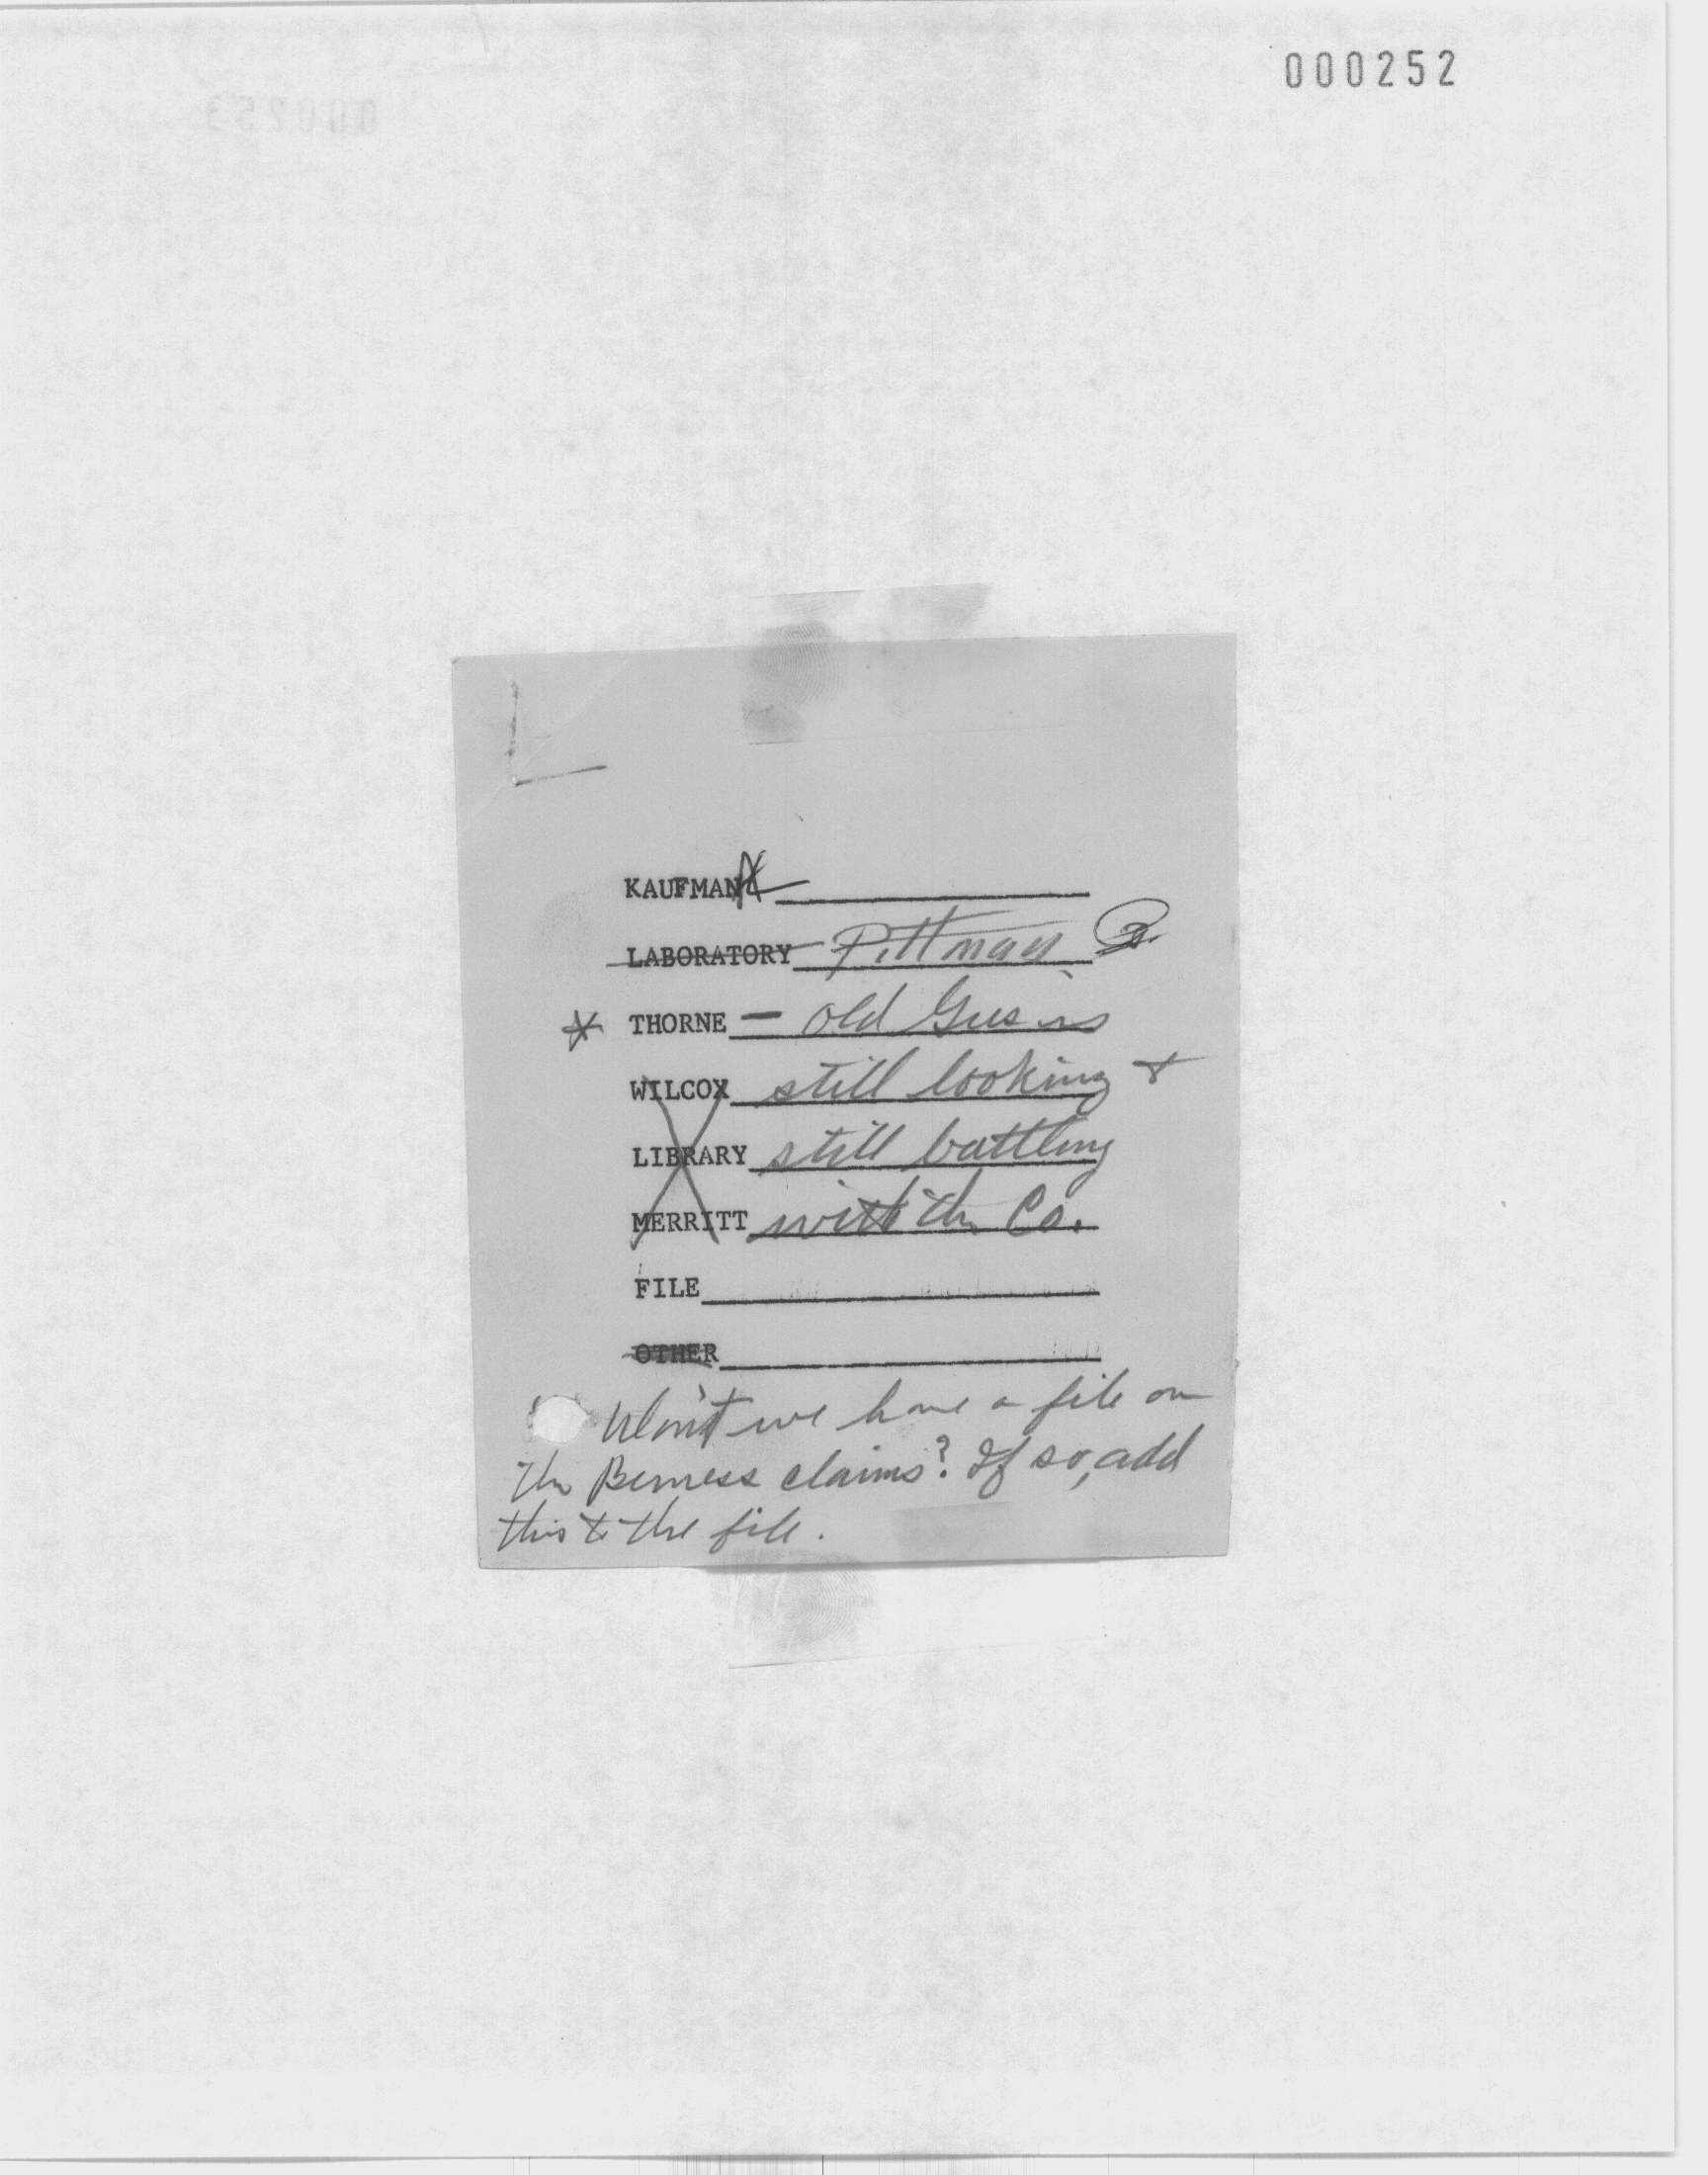 000252
KAUFMAN
LABORATORY Pittman
* THORNE — old Gus is
WILCOX still looking +
LIBRARY still battling
MERRITT with the Co.
FILE
OTHER
Don't we have a file on
the Berness claims? If so, add
this to the file.